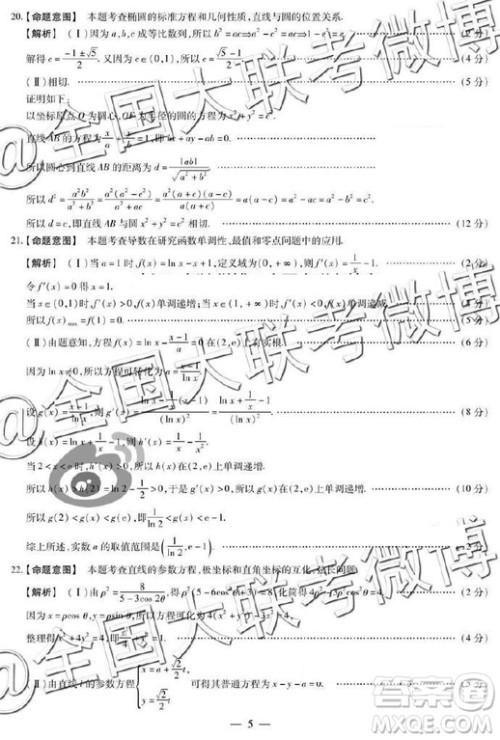 20.【命题意图】 本题考查椭圆的标准方程和几何性质,直线与圆的位置关系.
【解析】 (Ⅰ)因为a,b,c成等比数列,所以b²=ac⇒a²-c²=ac⇒e²+e-1=0. (2分)
解得e=(-1±√5)/2. 又因为e∈(0,1),所以e= (4分)
(Ⅱ)相切. (5分)
证明如下:
以坐标原点O为圆心,OF为半径的圆的方程为x²+y²=c².
直线AB的方程为x/a+y/b=1,即bx+ay-ab=0.
所以圆心到直线AB的距离为d=|ab|/√(a²+b²).
所以d²=a²b²/(a²+b²)=a²(a²-c²)/
所以d=c,即直线AB与x²+y²=c²相切. (12分)
21.【命题意图】 本题考查导数在研究函数单调性、最值和零点问题中的应用.
【解析】 (Ⅰ)当a=1时,f(x)=ln x-x+1,定义域为(0,+∞),f′(x)=1/x-1. (1分)
令f′(x)=0得x=1.
当x∈(0,1)时,f′(x)>0,f(x)单调递增;当x∈(1,+∞)时,f′(x)<0,f(x)单调递减.
所以f(x)max=f(1)=0.
(Ⅱ)由题意知,方程f(x)=ln x-(x-1)/a=0 (6分)
因为ln x≠0,所以方程可转化为a=(x-1)/ln x.
设g(x)=(x-1)/ln x,则g′(x)= (8分)
设h(x)=ln x+1/x-1,则h′(x)=1/x-1/x².
当2<x<e时,h′(x)>0,所以h(x)在(2,e)上单调递增.
所以h(x)>h(2)=ln 2-1/2>0,于是g′(x)>0,所以g(x)在(2,e)上单调递增. (10分)
所以g(2)<g(x)<g(e),即1/ln 2<g(x)<e-1.
综上所述,实数a的取值范围是(1/ln 2,e-1). (12分)
22.【命题意图】 本题考查直线的参数方程,极坐标和直角坐标的互化,弦长问题.
【解析】 (Ⅰ)由ρ²=8/(5-3cos 2θ),得ρ²(5-6cos²θ+3)=8,化简得4ρ²-3ρ²cos²θ=4. (2分)
因为x=ρcosθ,y=ρsinθ,所以方程可化为4(x²+y²)-3x²=4.
整理得x²+4y²=4,即x²/4+y²=1. (4分)
(Ⅱ)由直线l的参数方程{x=a+(√2/2)t, y=(√2/2)t, 可得其普通方程为x-y-a=0. (5分)
— 5 —
@全国大联考微博
@全国大联考微博
@全国大联考微博
答案圈
MXQE.COM